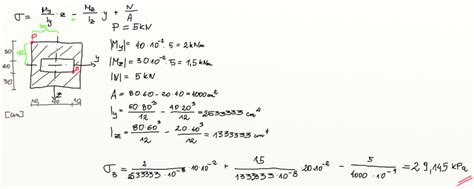 σ = My/Iy · z - Mz/Iz y + N/A
P = 5kN
|My| = 40·10⁻² · 5 = 2kNm
|Mz| = 30·10⁻² · 5 = 1,5kNm
|N| = 5kN
A = 80·60 - 20·40 = 4000cm²
Iy = 60·80³/12 - 40·20³/12 = 2533333 cm⁴
Iz = 80·60³/12 - 20·40³/12 = 1333333 cm⁴
σB = 2/2533333·10⁻⁸ · 10·10⁻² + 1,5/1333333·10⁻⁸ 20·10⁻² - 5/4000·10⁻⁴ = 29,145 kPa
P
y
30
20
30
B
z
10
10
[cm]